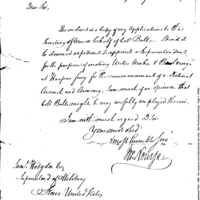 Dear Sir,
The inclosed is a Copy of my Application to the
Secretary of War in behalf of Colo Ball. Should it
be deemed expedient to appoint a Superintendent,
for the purpose of erecting Water Works &
at Harpers ferry for the reccommencement of a National
Arsenal and Armoury, I am much of an opinion that
Colo Ball might be very usefully employed therein.
I am with much regard D Sir
Your most Obed
Servt
Saml Hodgdon Esq
Superintendant of Military
Stores United States